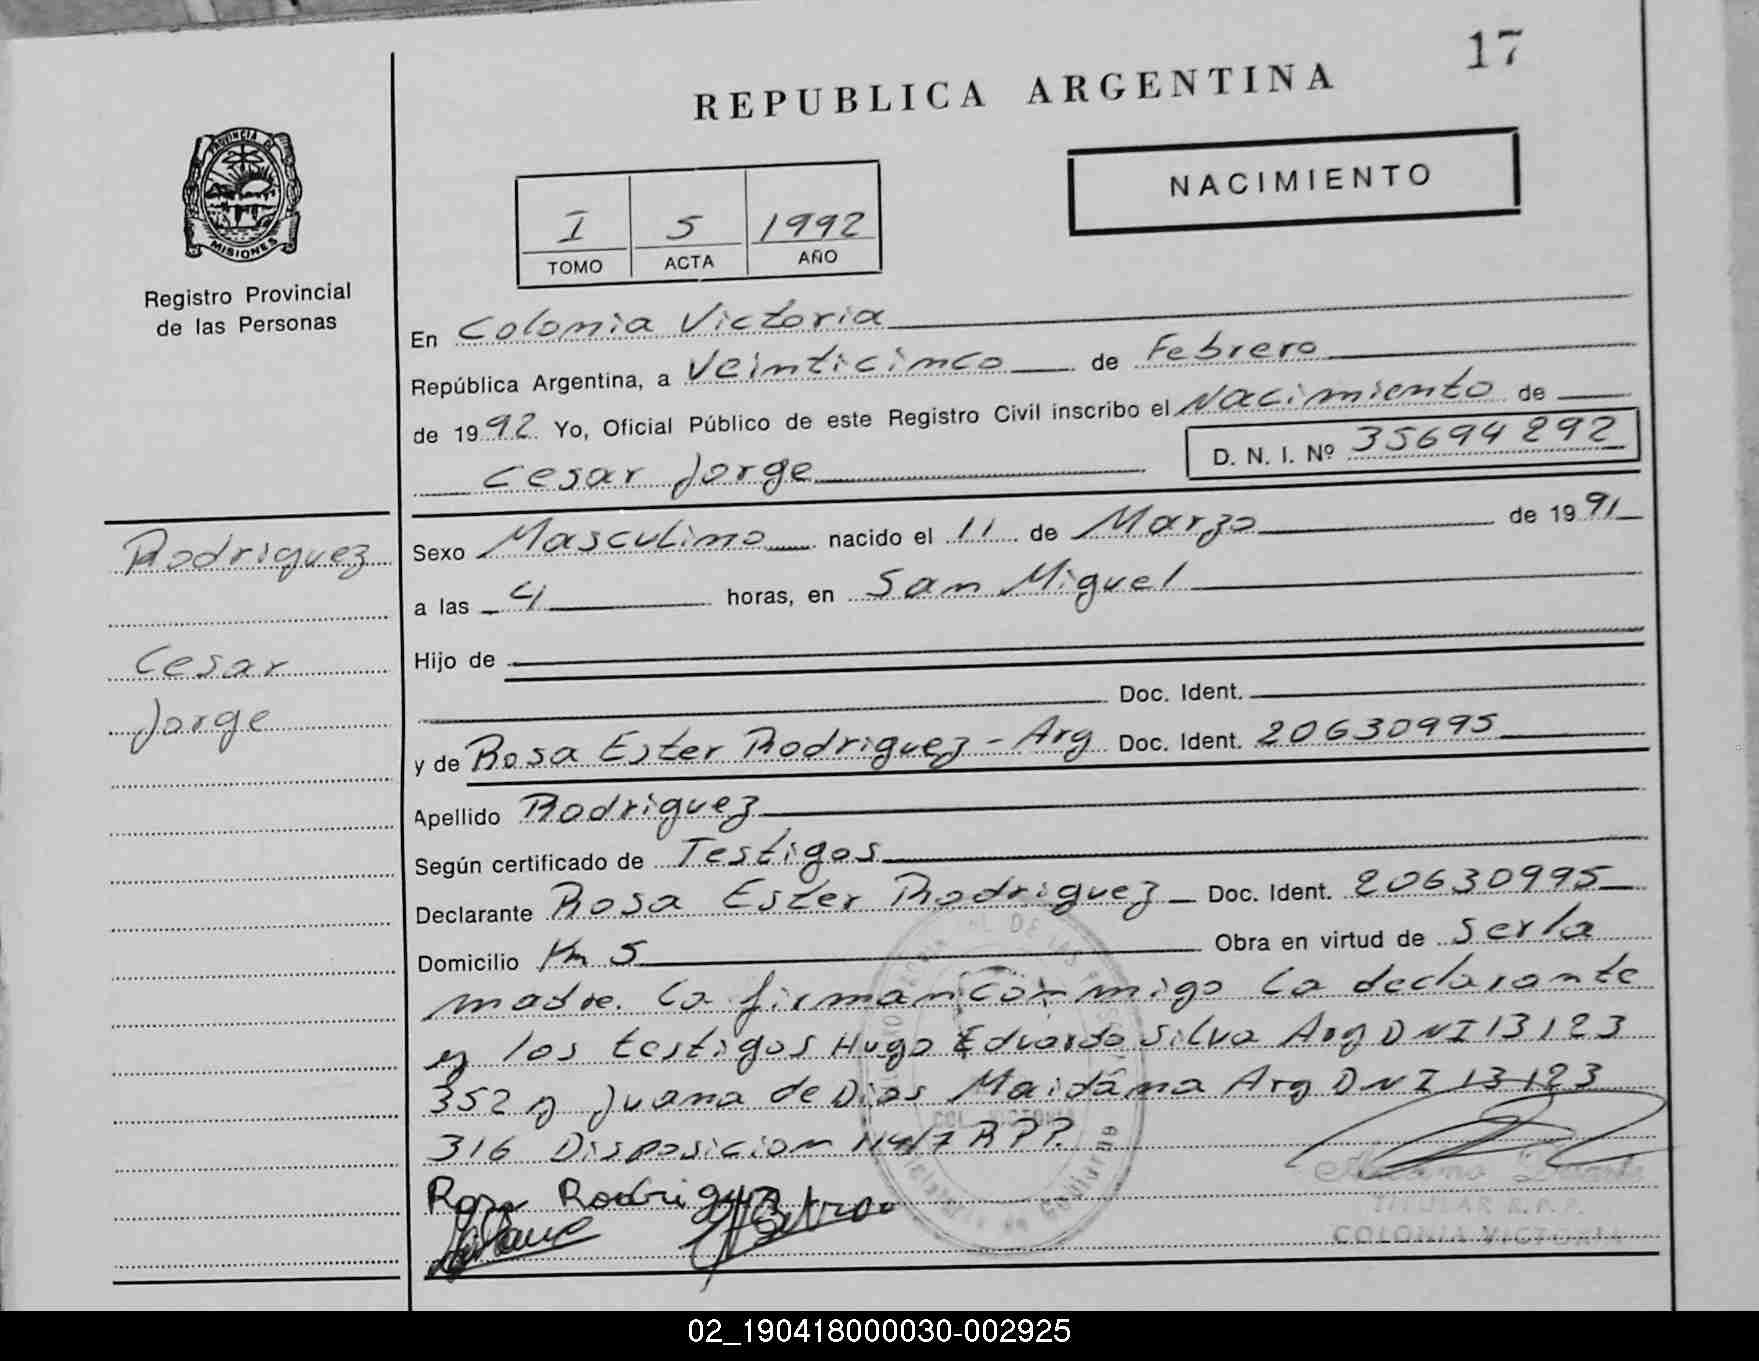 17
REPUBLICA ARGENTINA
NACIMIENTO
PROVINCIA DE
MISIONES
Registro Provincial
de las Personas
I 5 1992
TOMO ACTA AÑO
En Colonia Victoria
República Argentina, a Veinticinco de Febrero
de 1992 Yo, Oficial Público de este Registro Civil inscribo el Nacimiento de
Cesar Jorge D. N. I. Nº 35694292
Rodriguez
Cesar
Jorge
Sexo Masculino nacido el 11 de Marzo de 1991
a las 4 horas, en San Miguel
Hijo de
Doc. Ident.
y de Rosa Ester Rodriguez - Arg Doc. Ident. 20630995
Apellido Rodriguez
Según certificado de Testigos
Declarante Rosa Ester Rodriguez Doc. Ident. 20630995
Domicilio Km 5 Obra en virtud de Ser la
madre. La firman conmigo la declarante
y los testigos Hugo Eduardo Silva Arg DNI 13123
352 y Juana de Dios Maidána Arg DNI 13123
316 Disposicion 114/7 RPP.
Rosa Rodriguez
TITULAR R.P.P.
COLONIA VICTORIA
COL. VICTORIA
de Gobierno
02_190418000030-002925